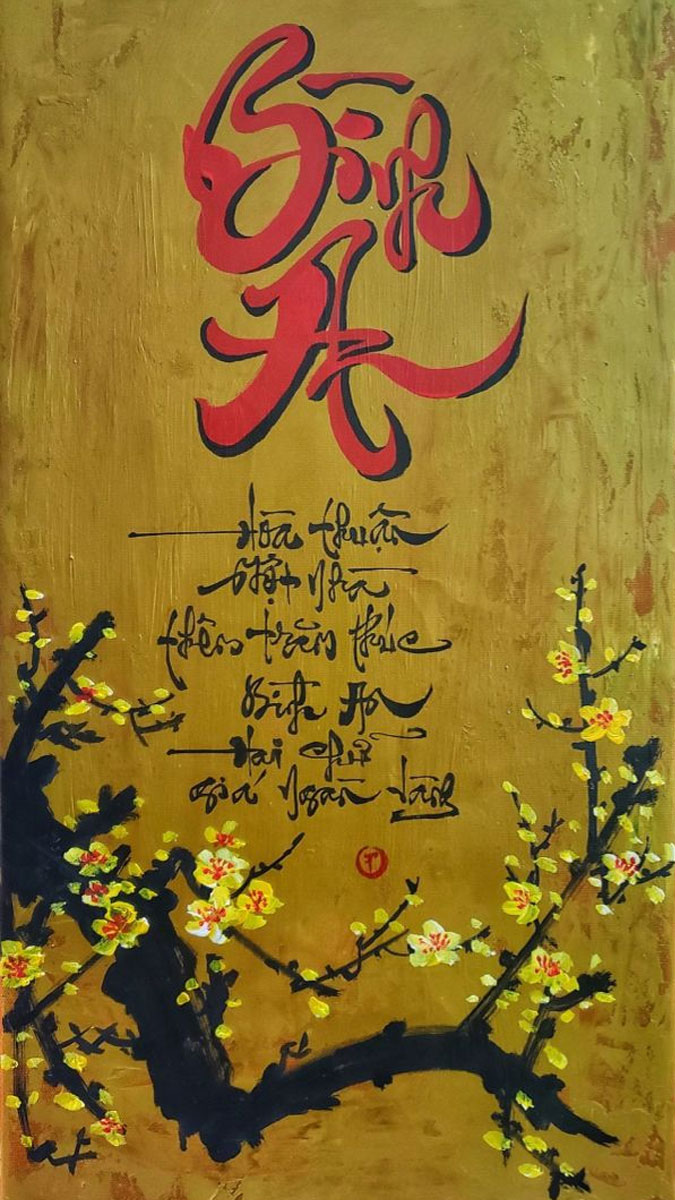 Bình
An
Hòa thuận
một nhà
thêm trăm thức
Bình An
Hai chữ
giá ngàn vàng